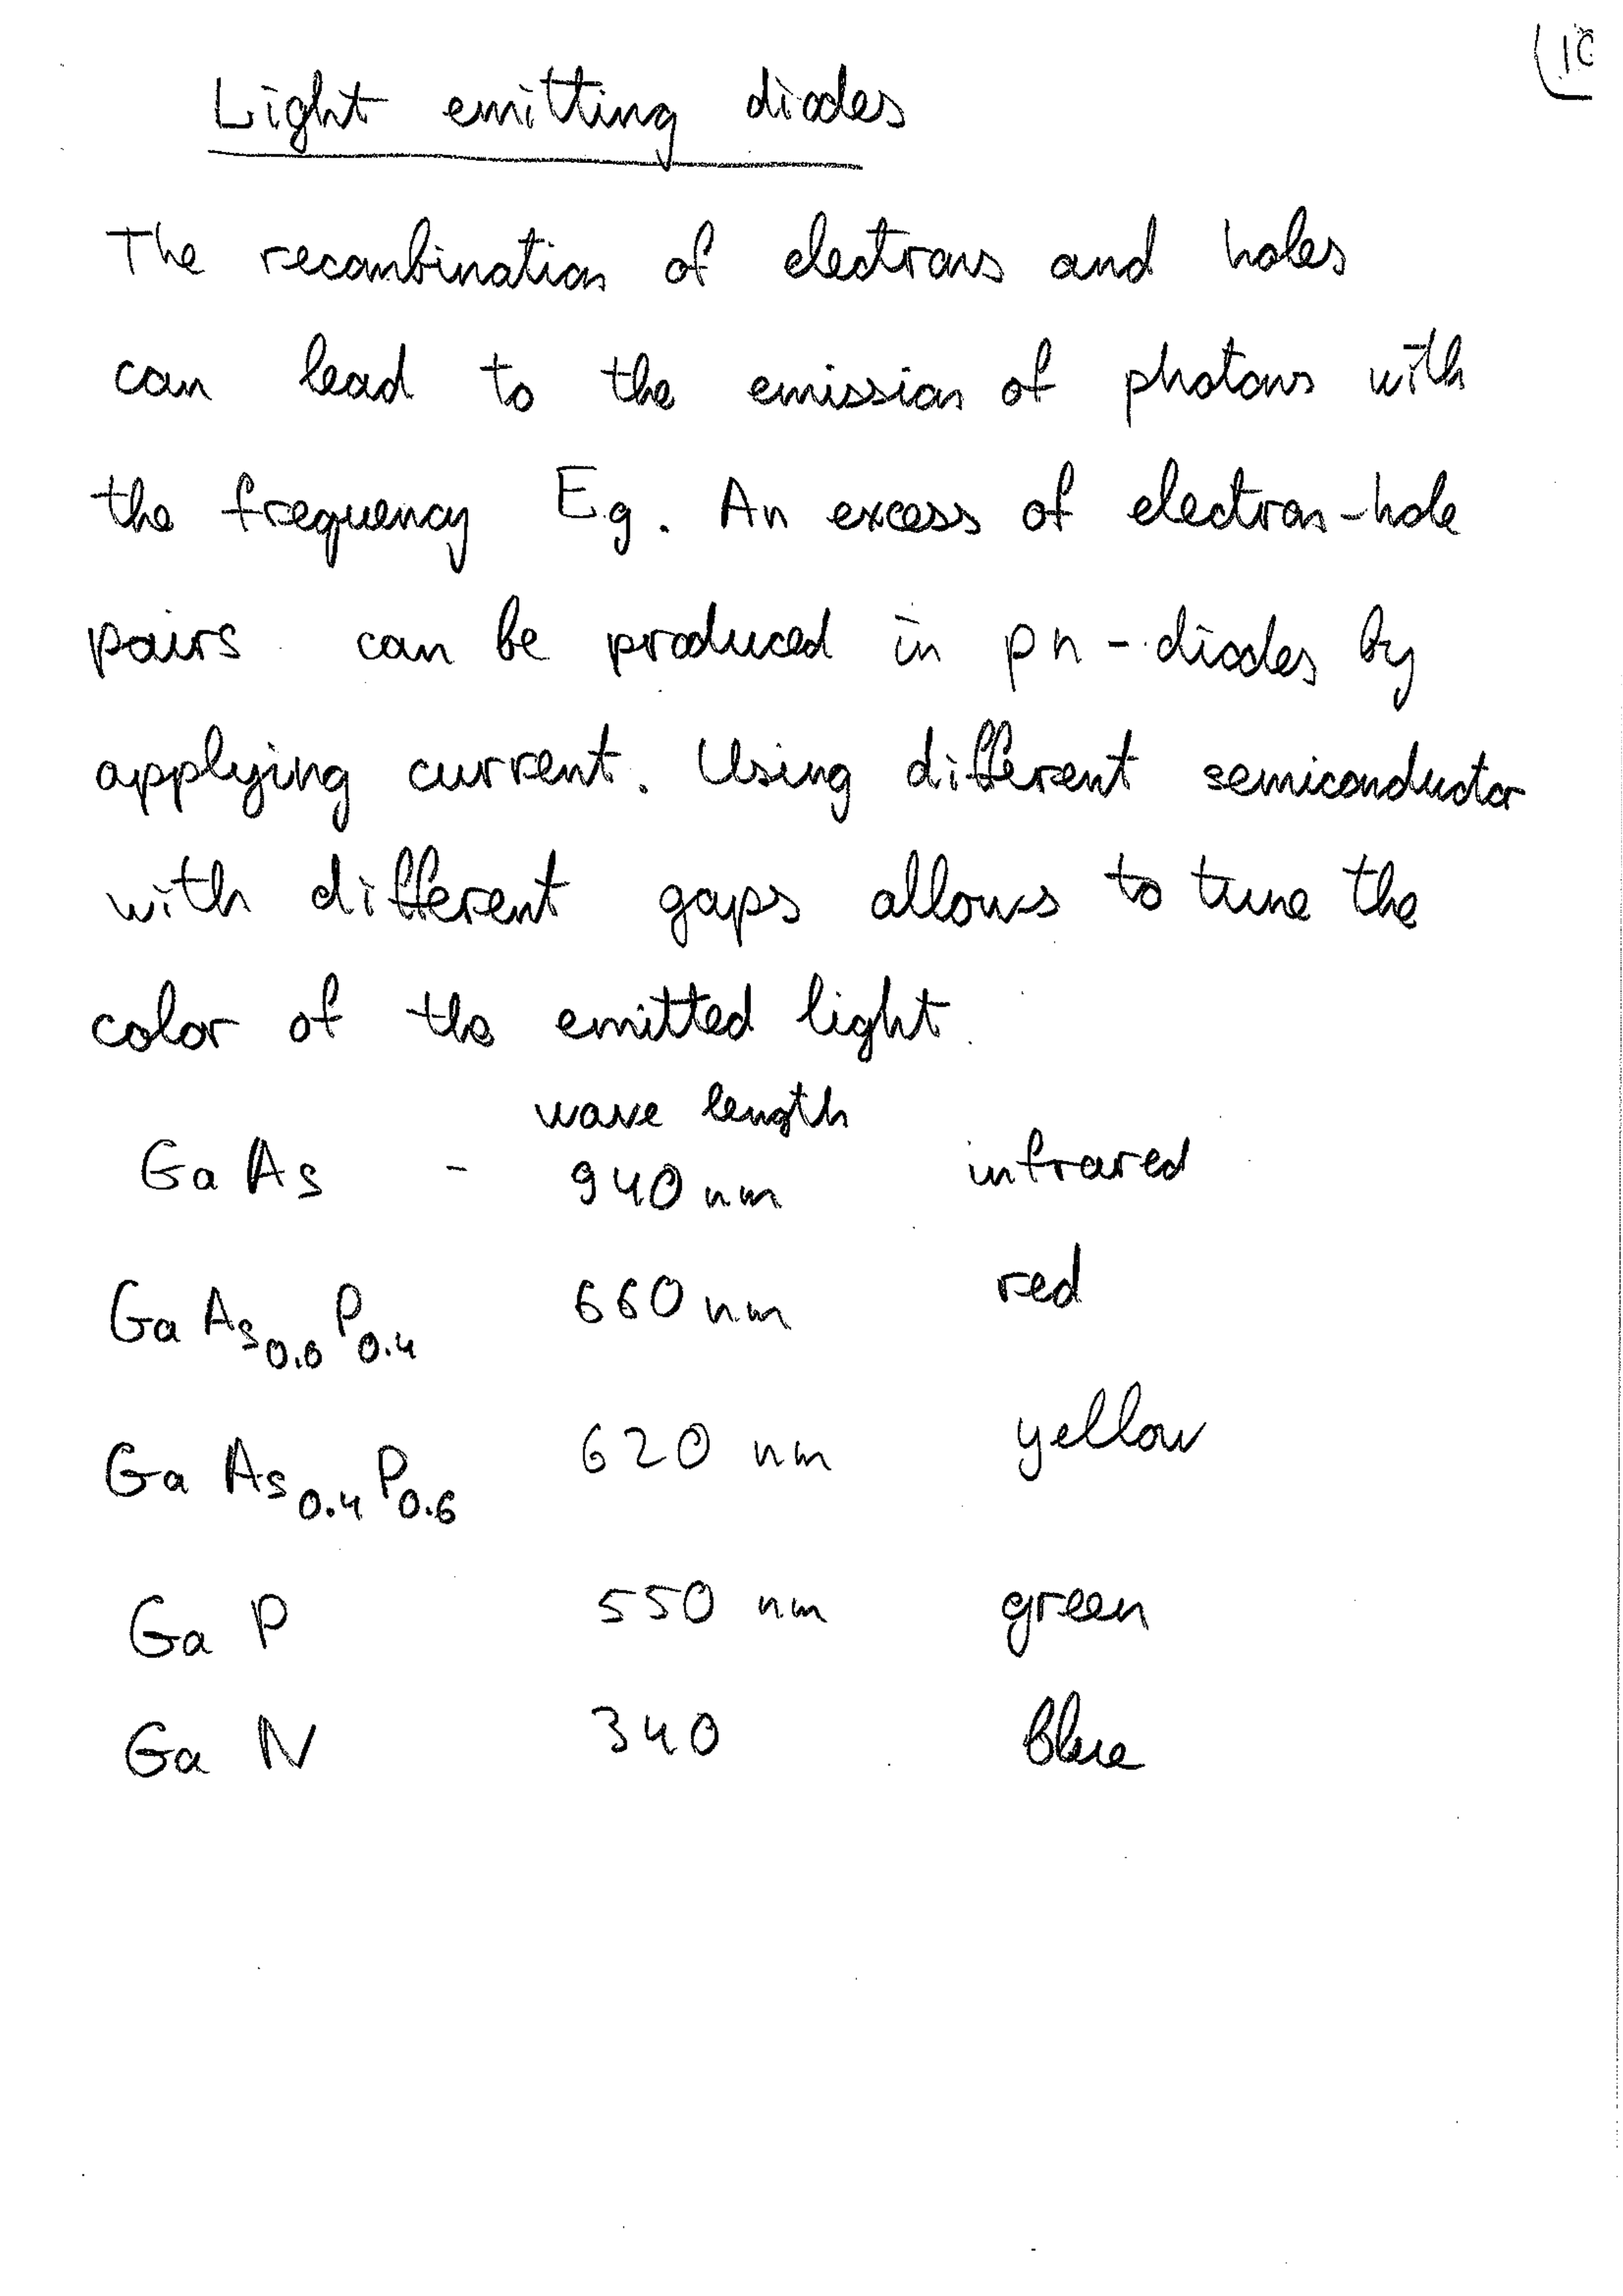 10
Light emitting diodes
The recombination of electrons and holes
can lead to the emission of photons with
the frequency Eg. An excess of electron-hole
pairs can be produced in pn-diodes by
applying current. Using different semiconductor
with different gaps allows to tune the
color of the emitted light.
wave length
GaAs - 940 nm infrared
GaAs0.6P0.4 660 nm red
GaAs0.4P0.6 620 nm yellow
GaP 550 nm green
GaN 340 Blue